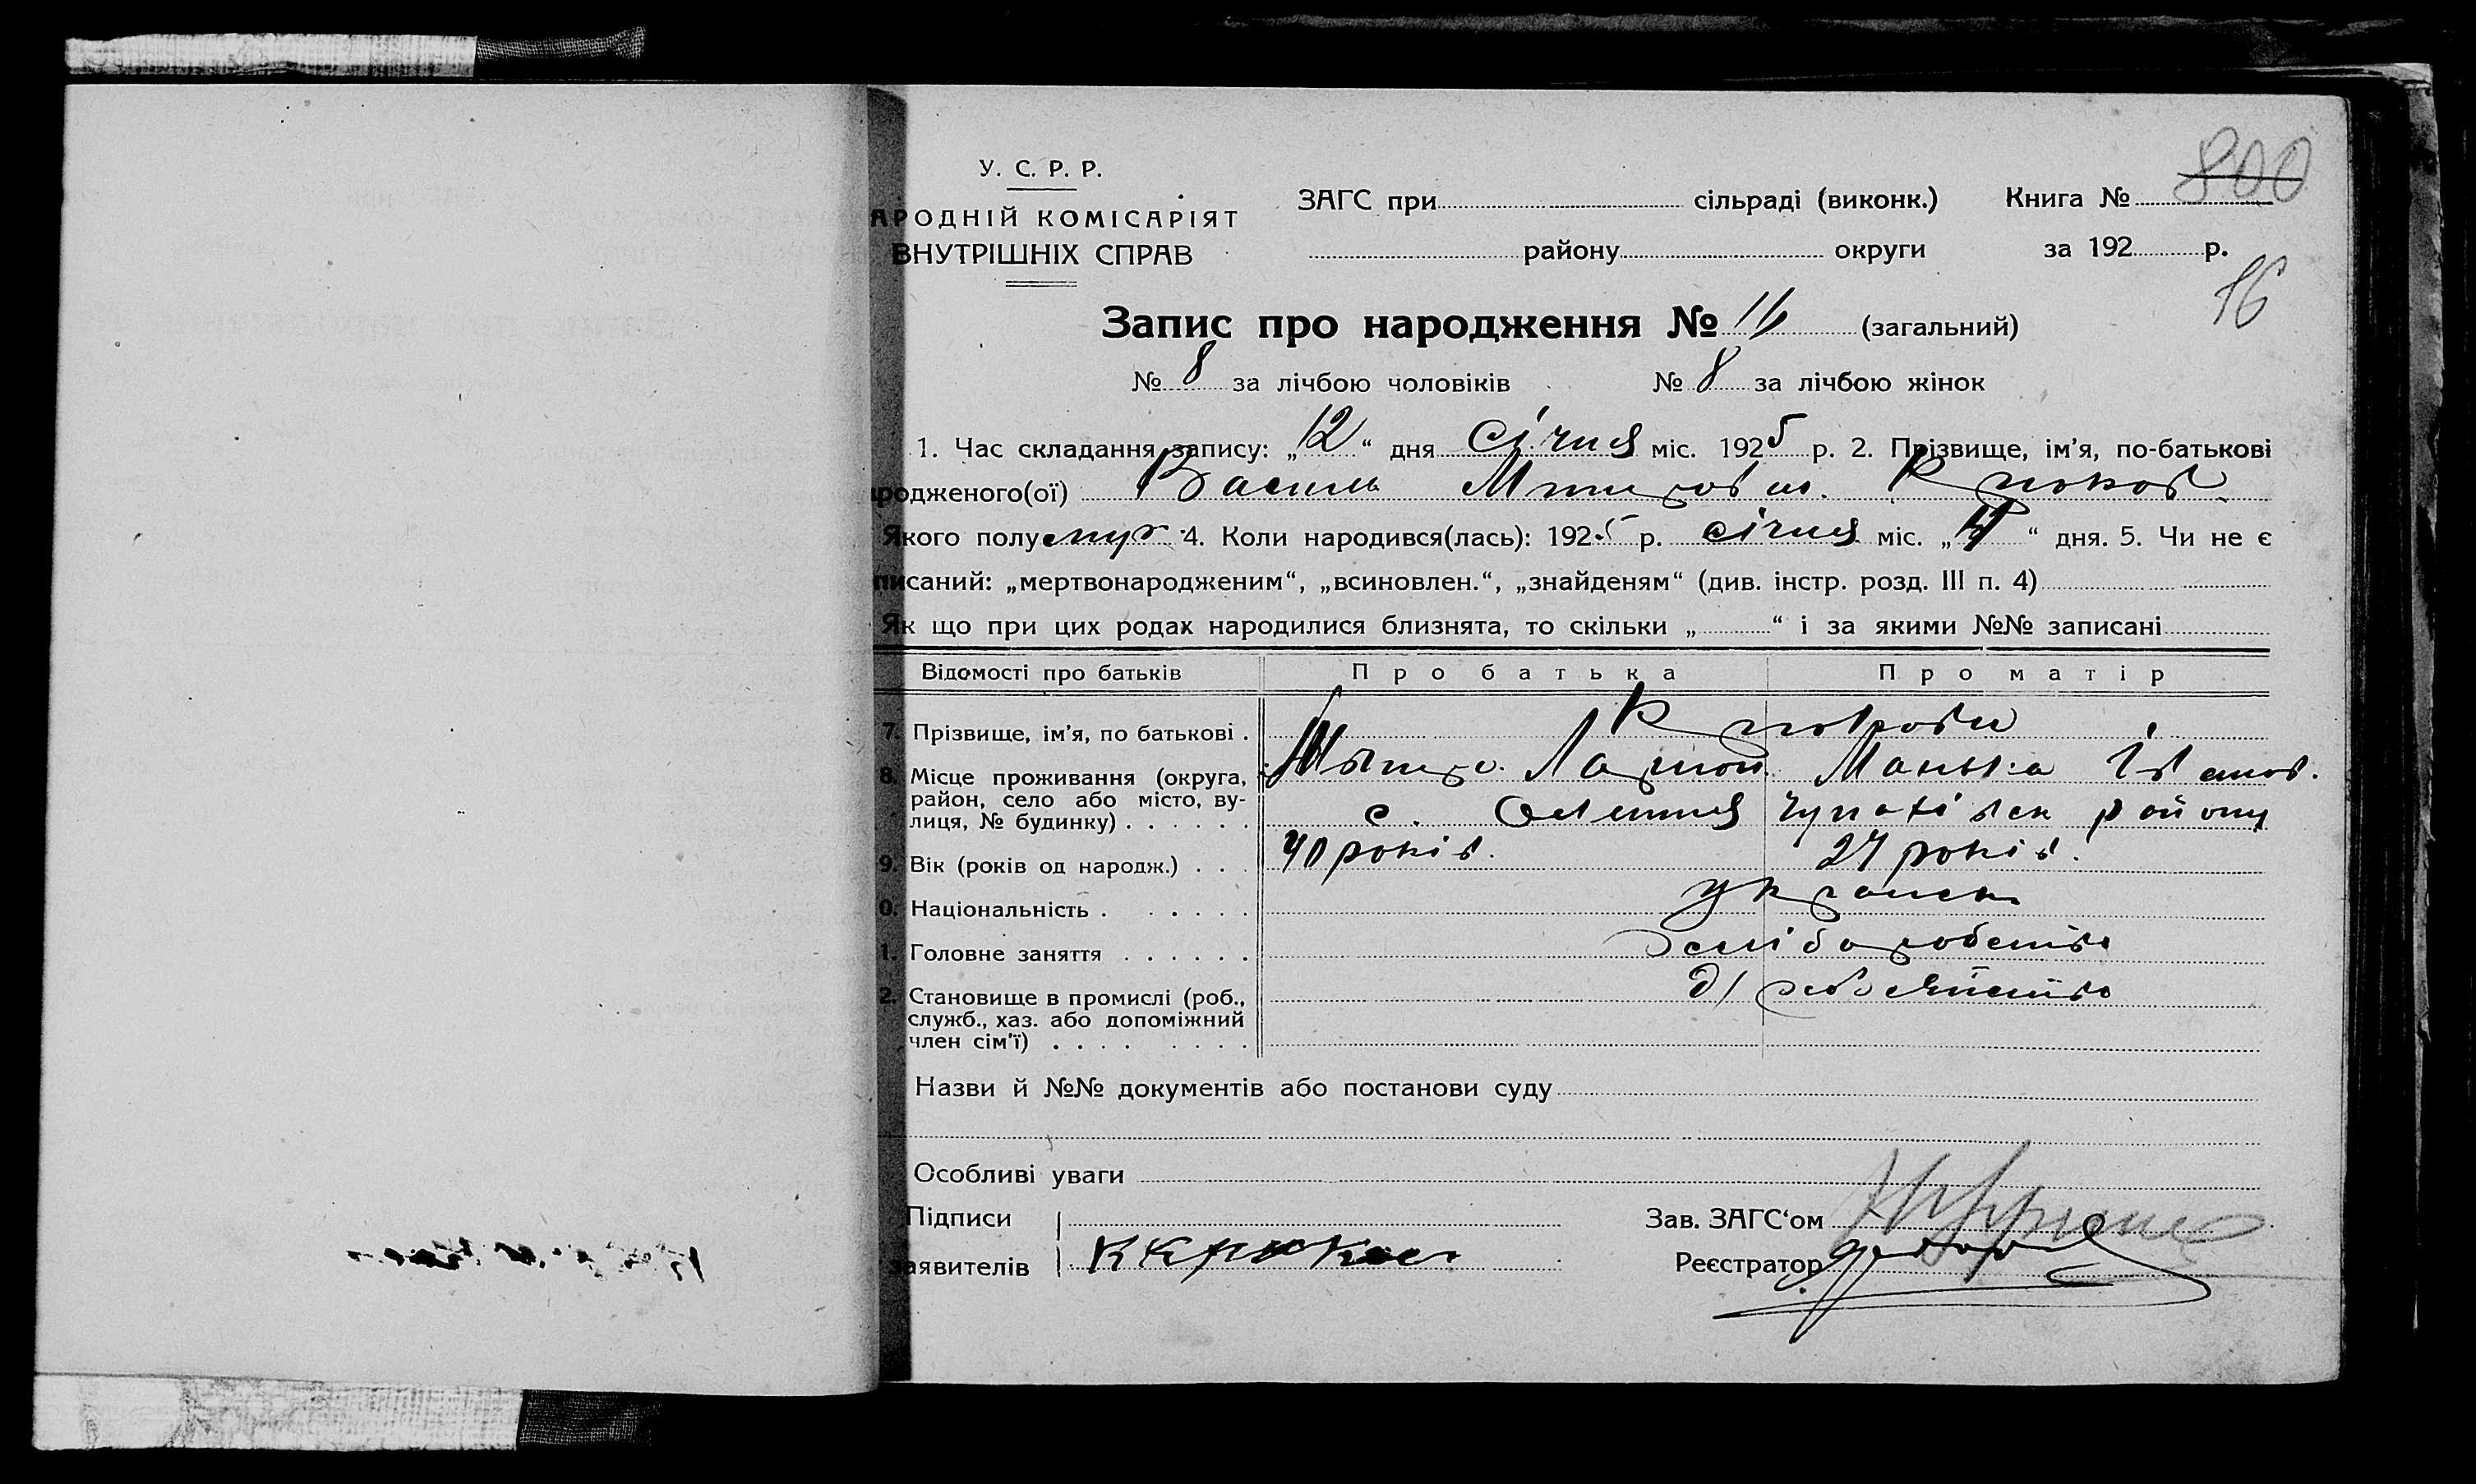 У. С. Р. Р.
АРОДНІЙ КОМІСАРІЯТ
ВНУТРІШНІХ СПРАВ
ЗАГС при сільраді (виконк.) Книга № 800
району округи за 192 р.
16
Запис про народження № 16 (загальний)
№ 8 за лічбою чоловіків № 8 за лічбою жінок
1. Час складання запису: „12“ дня Січня міс. 1925 р. 2. Прізвище, ім'я, по-батькові
родженого(ої) Василь Митров. Крюков
Якого полу муж 4. Коли народився(лась): 1925 р. січня міс. „“ дня. 5. Чи не є
писаний: „мертвонародженим“, „всиновлен.“, „знайденям“ (див. інстр. розд. III п. 4)
Як що при цих родах народилися близнята, то скільки „ “ і за якими №№ записані
Відомості про батьків Про батька Про матір
7. Прізвище, ім'я, по батькові . Крюкови
8. Місце проживання (округа, Митро. Ларіон. Манька Іванов.
район, село або місто, ву-
лиця, № будинку) . . . . . . с. Чупахівськ району
9. Вік (років од народж.) . . . 40 років. 27 років.
0. Національність . . . . . . Украінськ
1. Головне заняття . . . . . . Хліборобство
2. Становище в промислі (роб.,
служб., хаз. або допоміжний
член сім'ї) . . . . . . . .
Назви й №№ документів або постанови суду
Особливі уваги
Підписи
заявителів
Зав. ЗАГС'ом
Реєстратор